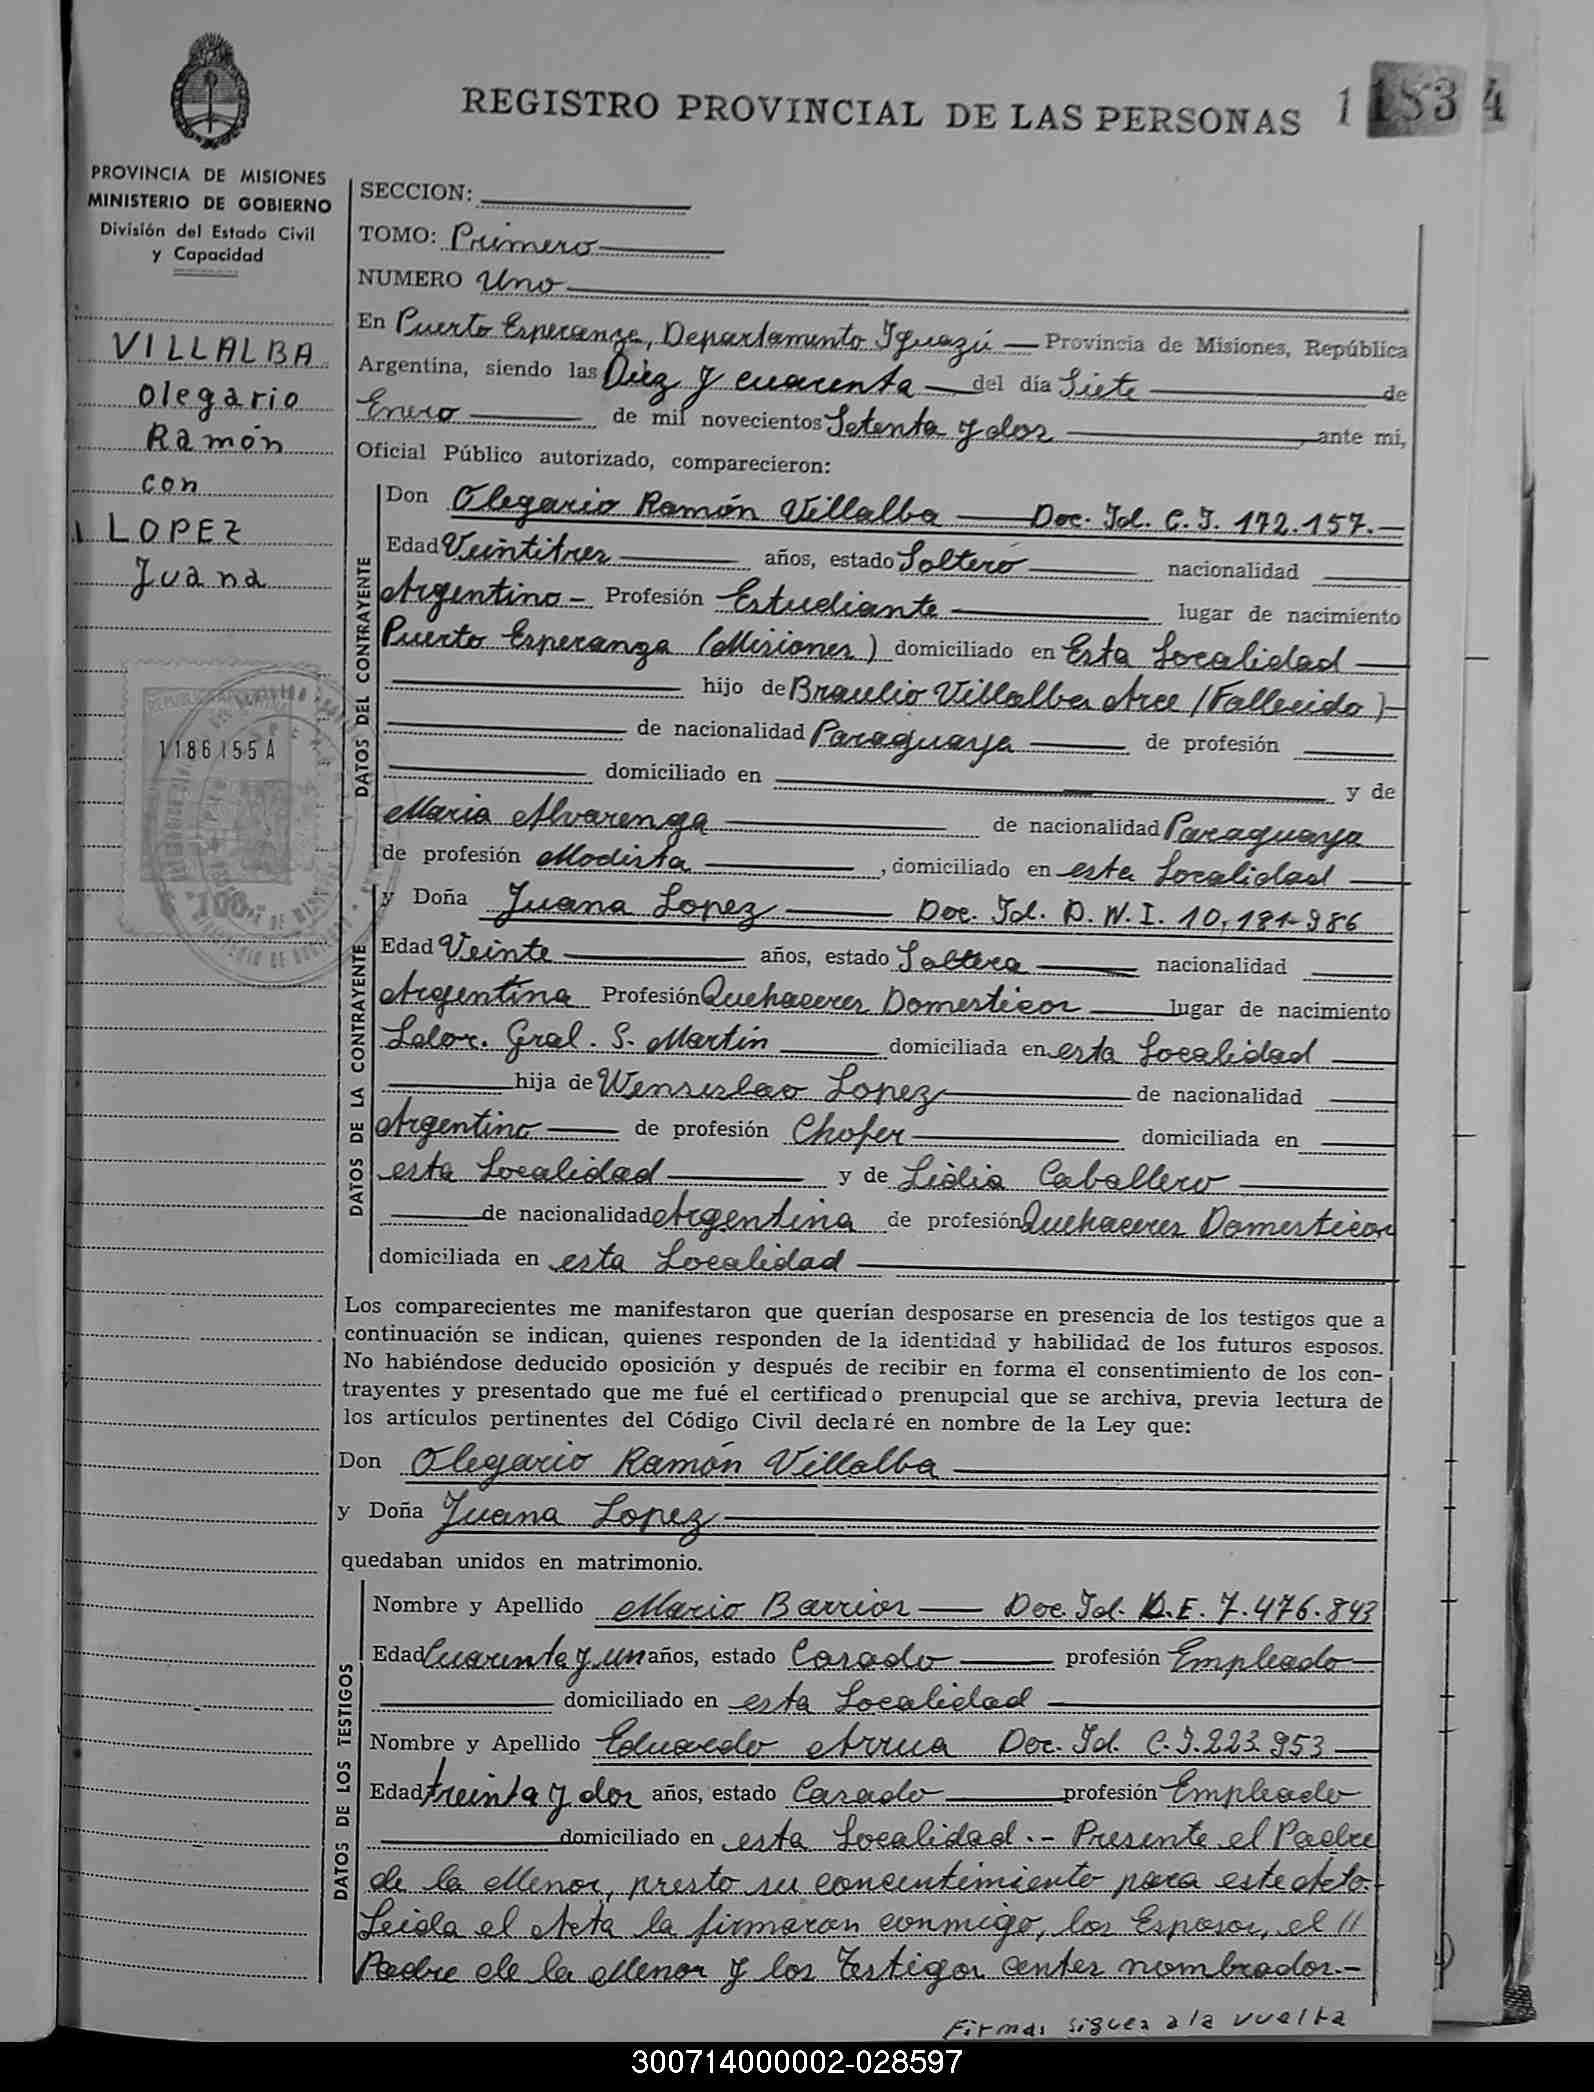 REGISTRO PROVINCIAL DE LAS PERSONAS
1 1834
PROVINCIA DE MISIONES
MINISTERIO DE GOBIERNO
División del Estado Civil
y Capacidad
VILLALBA
Olegario
Ramón
con
LOPEZ
Juana
1186155A
SECCION:
TOMO: Primero
NUMERO Uno
En Puerto Esperanza, Departamento Iguazú — Provincia de Misiones, República
Argentina, siendo las Diez y cuarenta — del día Siete — de
Enero — de mil novecientos Setenta y dos — ante mi,
Oficial Público autorizado, comparecieron:
DATOS DEL CONTRAYENTE
Don Olegario Ramón Villalba — Doc. Id. C.I. 172.157.—
Edad Veintitres — años, estado Soltero — nacionalidad —
Argentino - Profesión Estudiante — lugar de nacimiento
Puerto Esperanza (Misiones) domiciliado en Esta Localidad —
— hijo de Braulio Villalba Arce (Fallecido) —
— de nacionalidad Paraguaya — de profesión —
— domiciliado en — y de
Maria Alvarenga — de nacionalidad Paraguaya
de profesión Modista —, domiciliado en esta Localidad —
DATOS DE LA CONTRAYENTE
y Doña Juana Lopez — Doc. Id. D.N.I. 10,181-986
Edad Veinte — años, estado Soltera — nacionalidad —
Argentina Profesión Quehaceres Domesticos — lugar de nacimiento
Ldor. Gral. S. Martin — domiciliada en esta Localidad —
— hija de Wenseslao Lopez — de nacionalidad —
Argentino — de profesión Chofer — domiciliada en —
esta Localidad — y de Lidia Caballero —
— de nacionalidad Argentina de profesión Quehaceres Domesticos
domiciliada en esta Localidad —
Los comparecientes me manifestaron que querían desposarse en presencia de los testigos que a
continuación se indican, quienes responden de la identidad y habilidad de los futuros esposos.
No habiéndose deducido oposición y después de recibir en forma el consentimiento de los con-
trayentes y presentado que me fué el certificado prenupcial que se archiva, previa lectura de
los artículos pertinentes del Código Civil declaré en nombre de la Ley que:
Don Olegario Ramón Villalba —
y Doña Juana Lopez —
quedaban unidos en matrimonio.
DATOS DE LOS TESTIGOS
Nombre y Apellido Mario Barrios — Doc. Id. D.E. 7.476.843
Edad Cuarenta y un años, estado Casado — profesión Empleado —
— domiciliado en esta Localidad —
Nombre y Apellido Eduardo Arrua Doc. Id. C.I. 223.953 —
Edad treinta y dos años, estado Casado — profesión Empleado
— domiciliado en esta Localidad.- Presente el Padre
de la Menor, presto su concentimiento para este Acto.-
Leida el Acta la firmaron conmigo, los Esposos, el //
Padre de la Menor y los Testigos antes nombrados.-
Firmas siguen a la vuelta
300714000002-028597